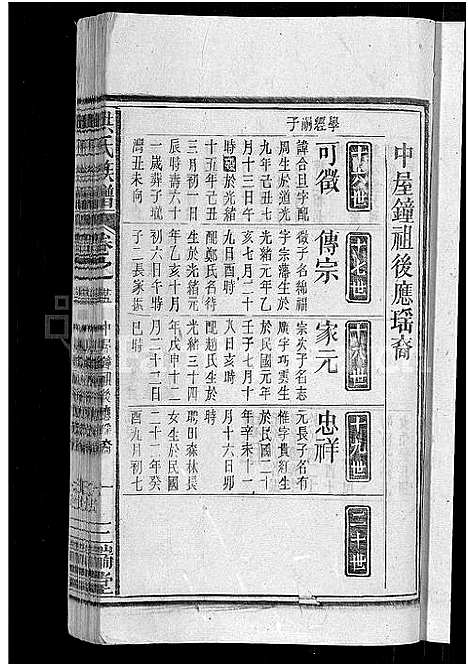 中屋鐘祖後應瑤裔
十六世
十七世
十八世
十九世
二十世
學經嗣子
可徵
諱合旦字配
周生於道光
九年己丑七
月十三日午
時 於光緒
十五年己丑
三月初一日
辰時壽六十
一歲葬子坑
灣丑未向
傳宗
徵子名綿福
字宗藩生於
光緒元年乙
亥七月二十
九日酉時
配鄭氏名待
光緒三年丁
年乙亥十月
初六日午時
子二長家 振
家元
宗次子名志
廣字巧雲生
於民國元年
壬子七月十
八日亥時
配趙氏生於
光緒三十四
年戊申十二
月二十三日
巳時
忠祥
元長子名有
惟字貴紅生
於民國二十
年辛未十一
月十六日卯
時
聘田森林長
女生於民國
二十一年癸
酉九月初七
洪氏族譜
卷之
中屋鐘祖後應瑤裔
三瑞堂